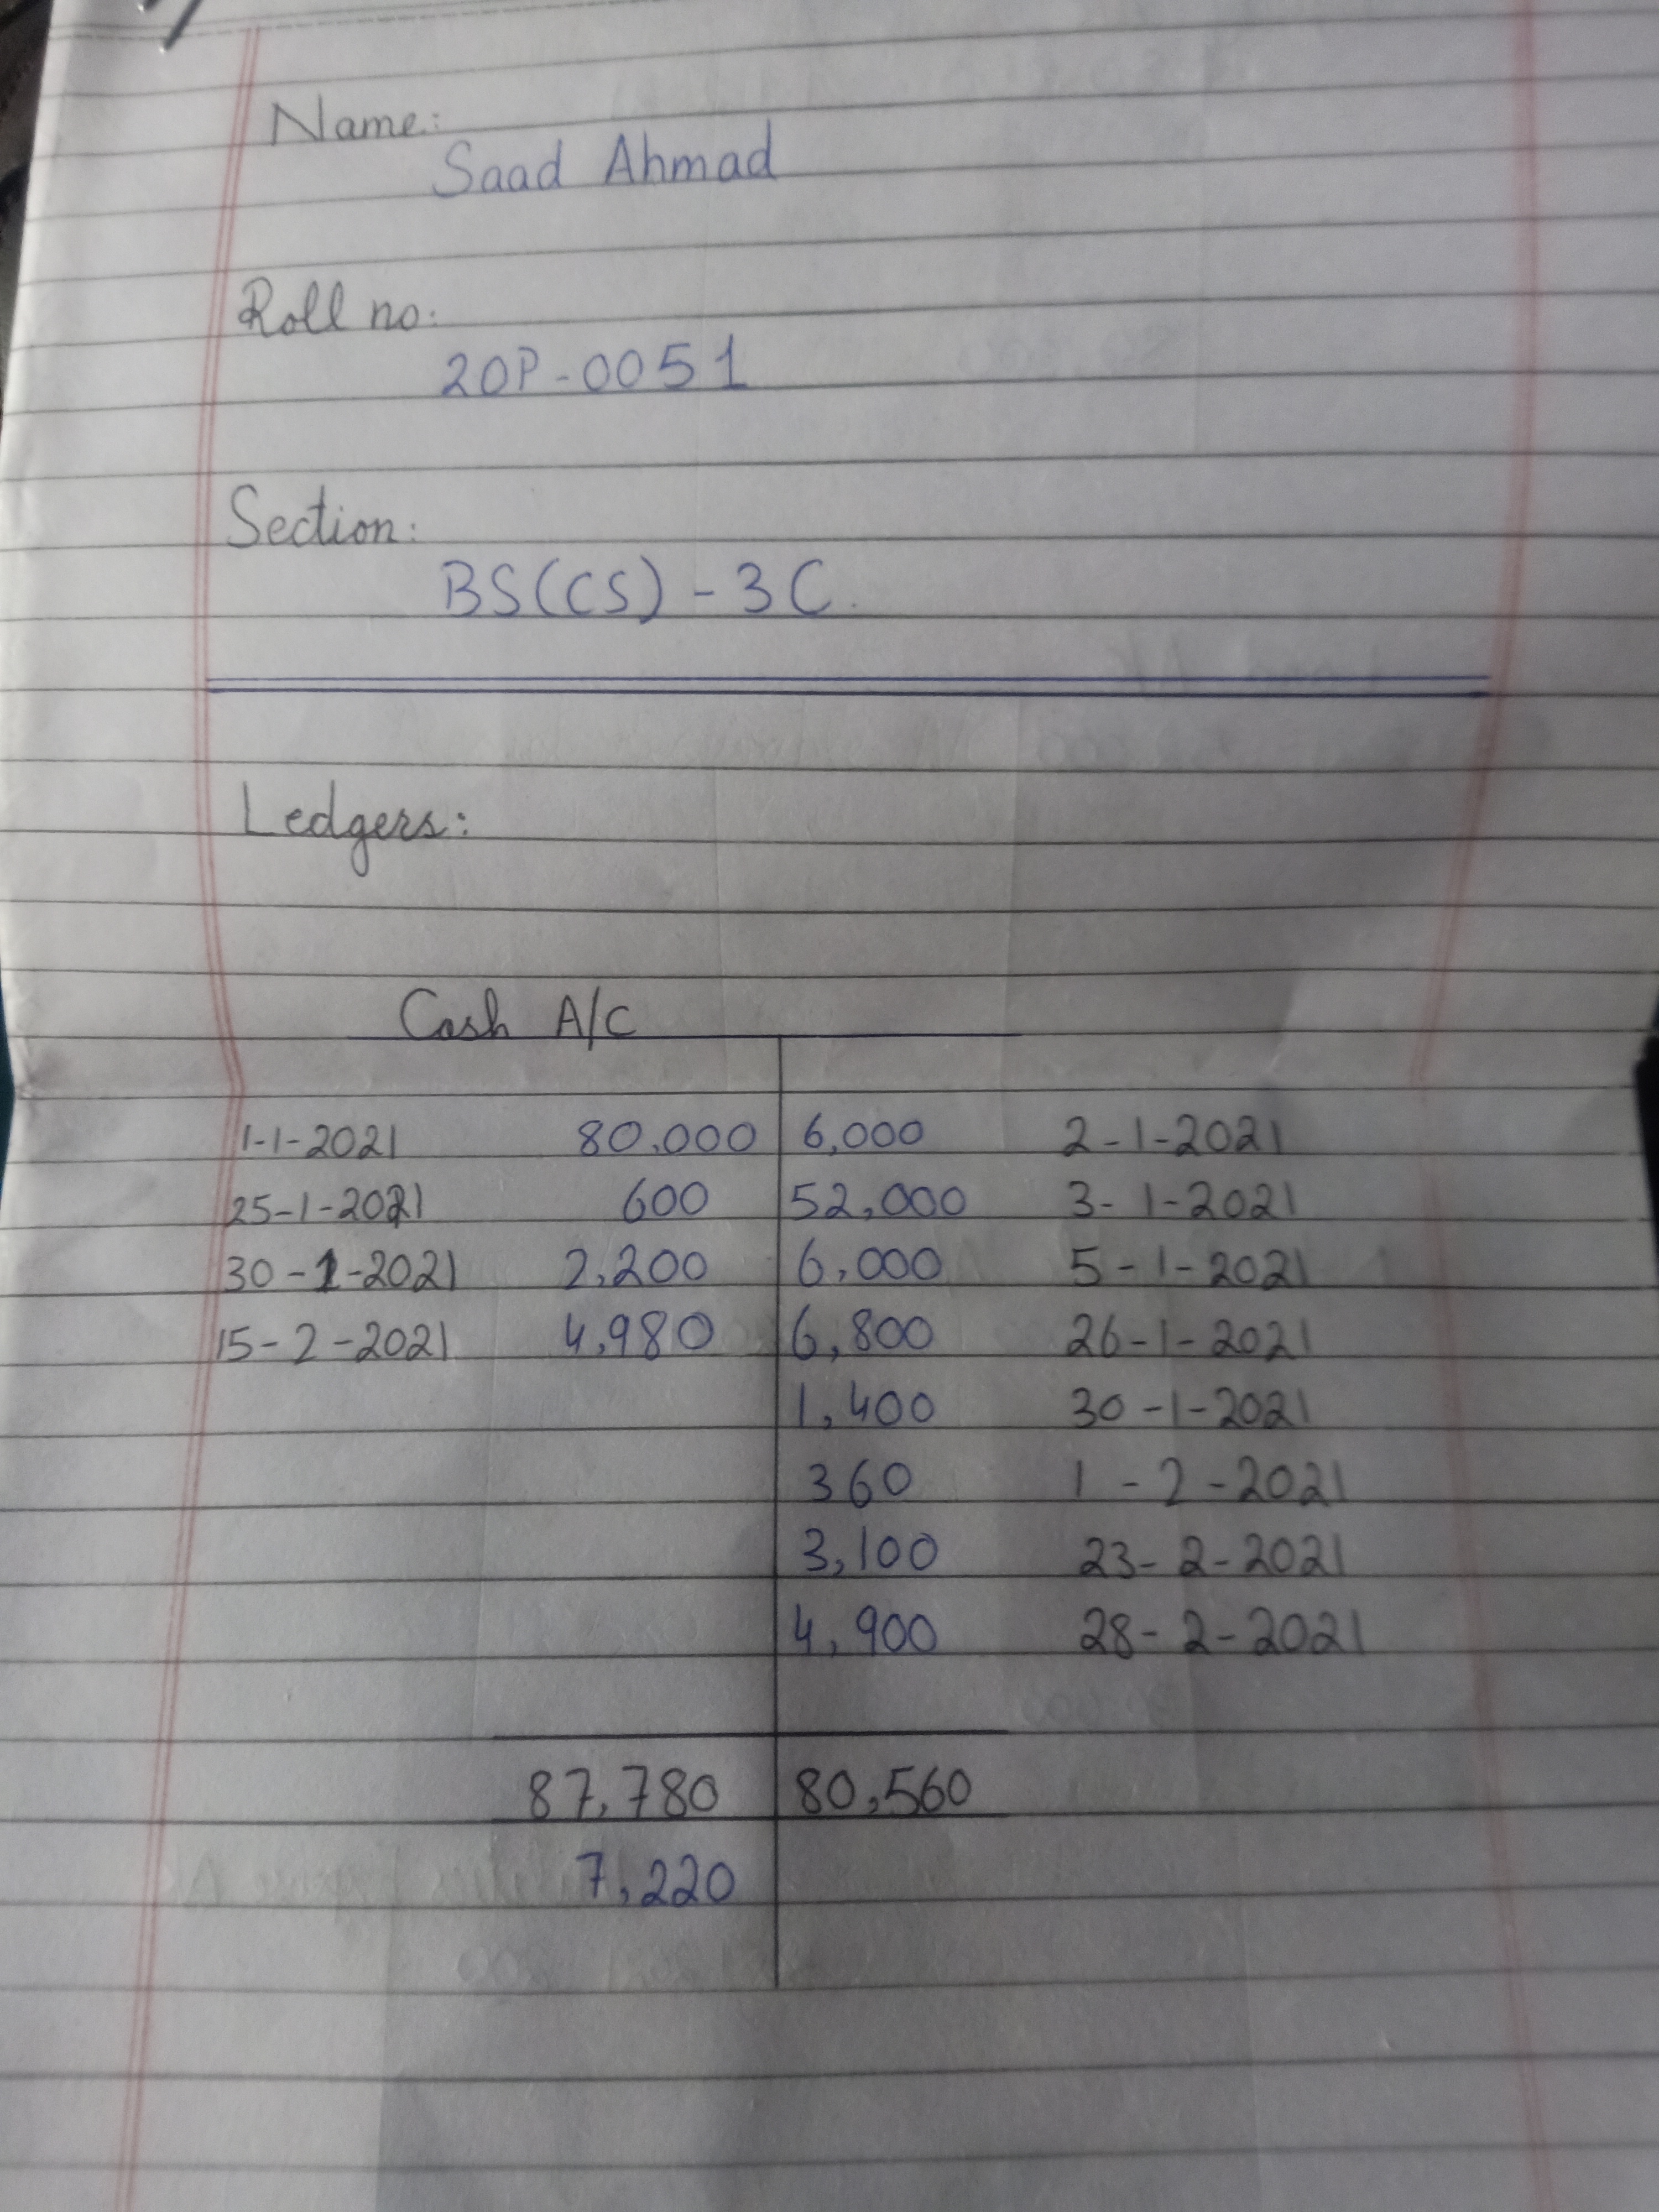 Name:
Saad Ahmad
Roll no:
20P-0051
Section:
BS(CS) - 3C.
Ledgers:
Cash A/C
1-1-2021 80,000 6,000 2-1-2021
25-1-2021 600 52,000 3-1-2021
30-1-2021 2,200 6,000 5-1-2021
15-2-2021 4,980 6,800 26-1-2021
1,400 30-1-2021
360 1-2-2021
3,100 23-2-2021
4,900 28-2-2021
87,780 80,560
7,220